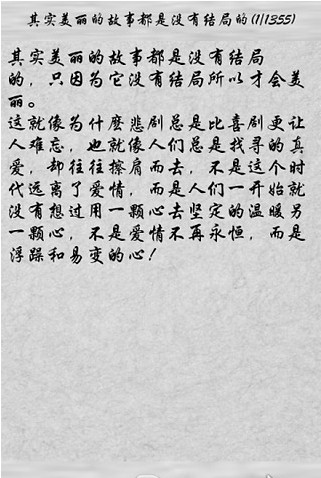 其实美丽的故事都是没有结局的(1/1355)
其实美丽的故事都是没有结局
的，只因为它没有结局所以才会美
丽。
这就像为什麽悲剧总是比喜剧更让
人难忘，也就像人们总是找寻的真
爱，却往往擦肩而去，不是这个时
代远离了爱情，而是人们一开始就
没有想过用一颗心去坚定的温暖另
一颗心，不是爱情不再永恒，而是
浮躁和易变的心！